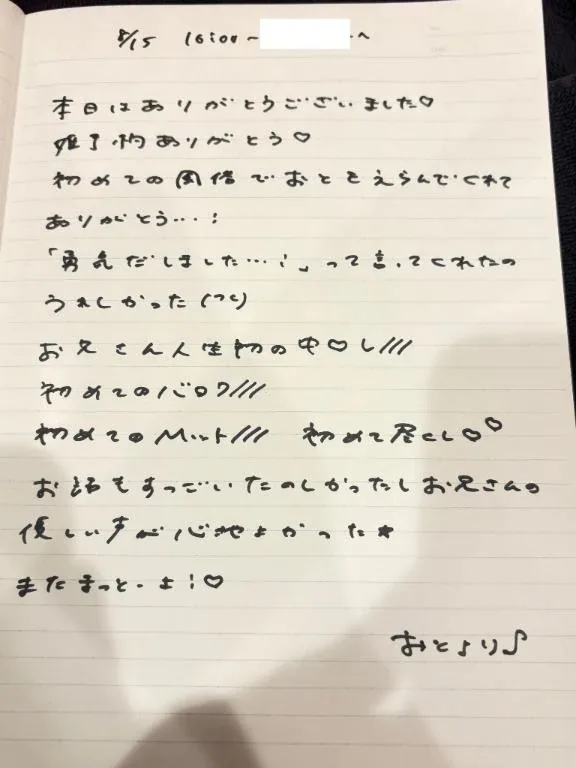 8/15 16:00~ へ
本日はありがとうございました♡
ありがとう♡
初めての でおとをえらんでくれて
ありがとう…!
「勇気だしました…!」って言ってくれたの
うれしかった
お兄さん人生初の中♡し///
初めてのバロワ///
初めてのマット/// 初めて ♡♡
お話もすっごいたのしかったしお兄さんの
優しい声が心地よかった★
またまっとーよ!♡
おとより♪